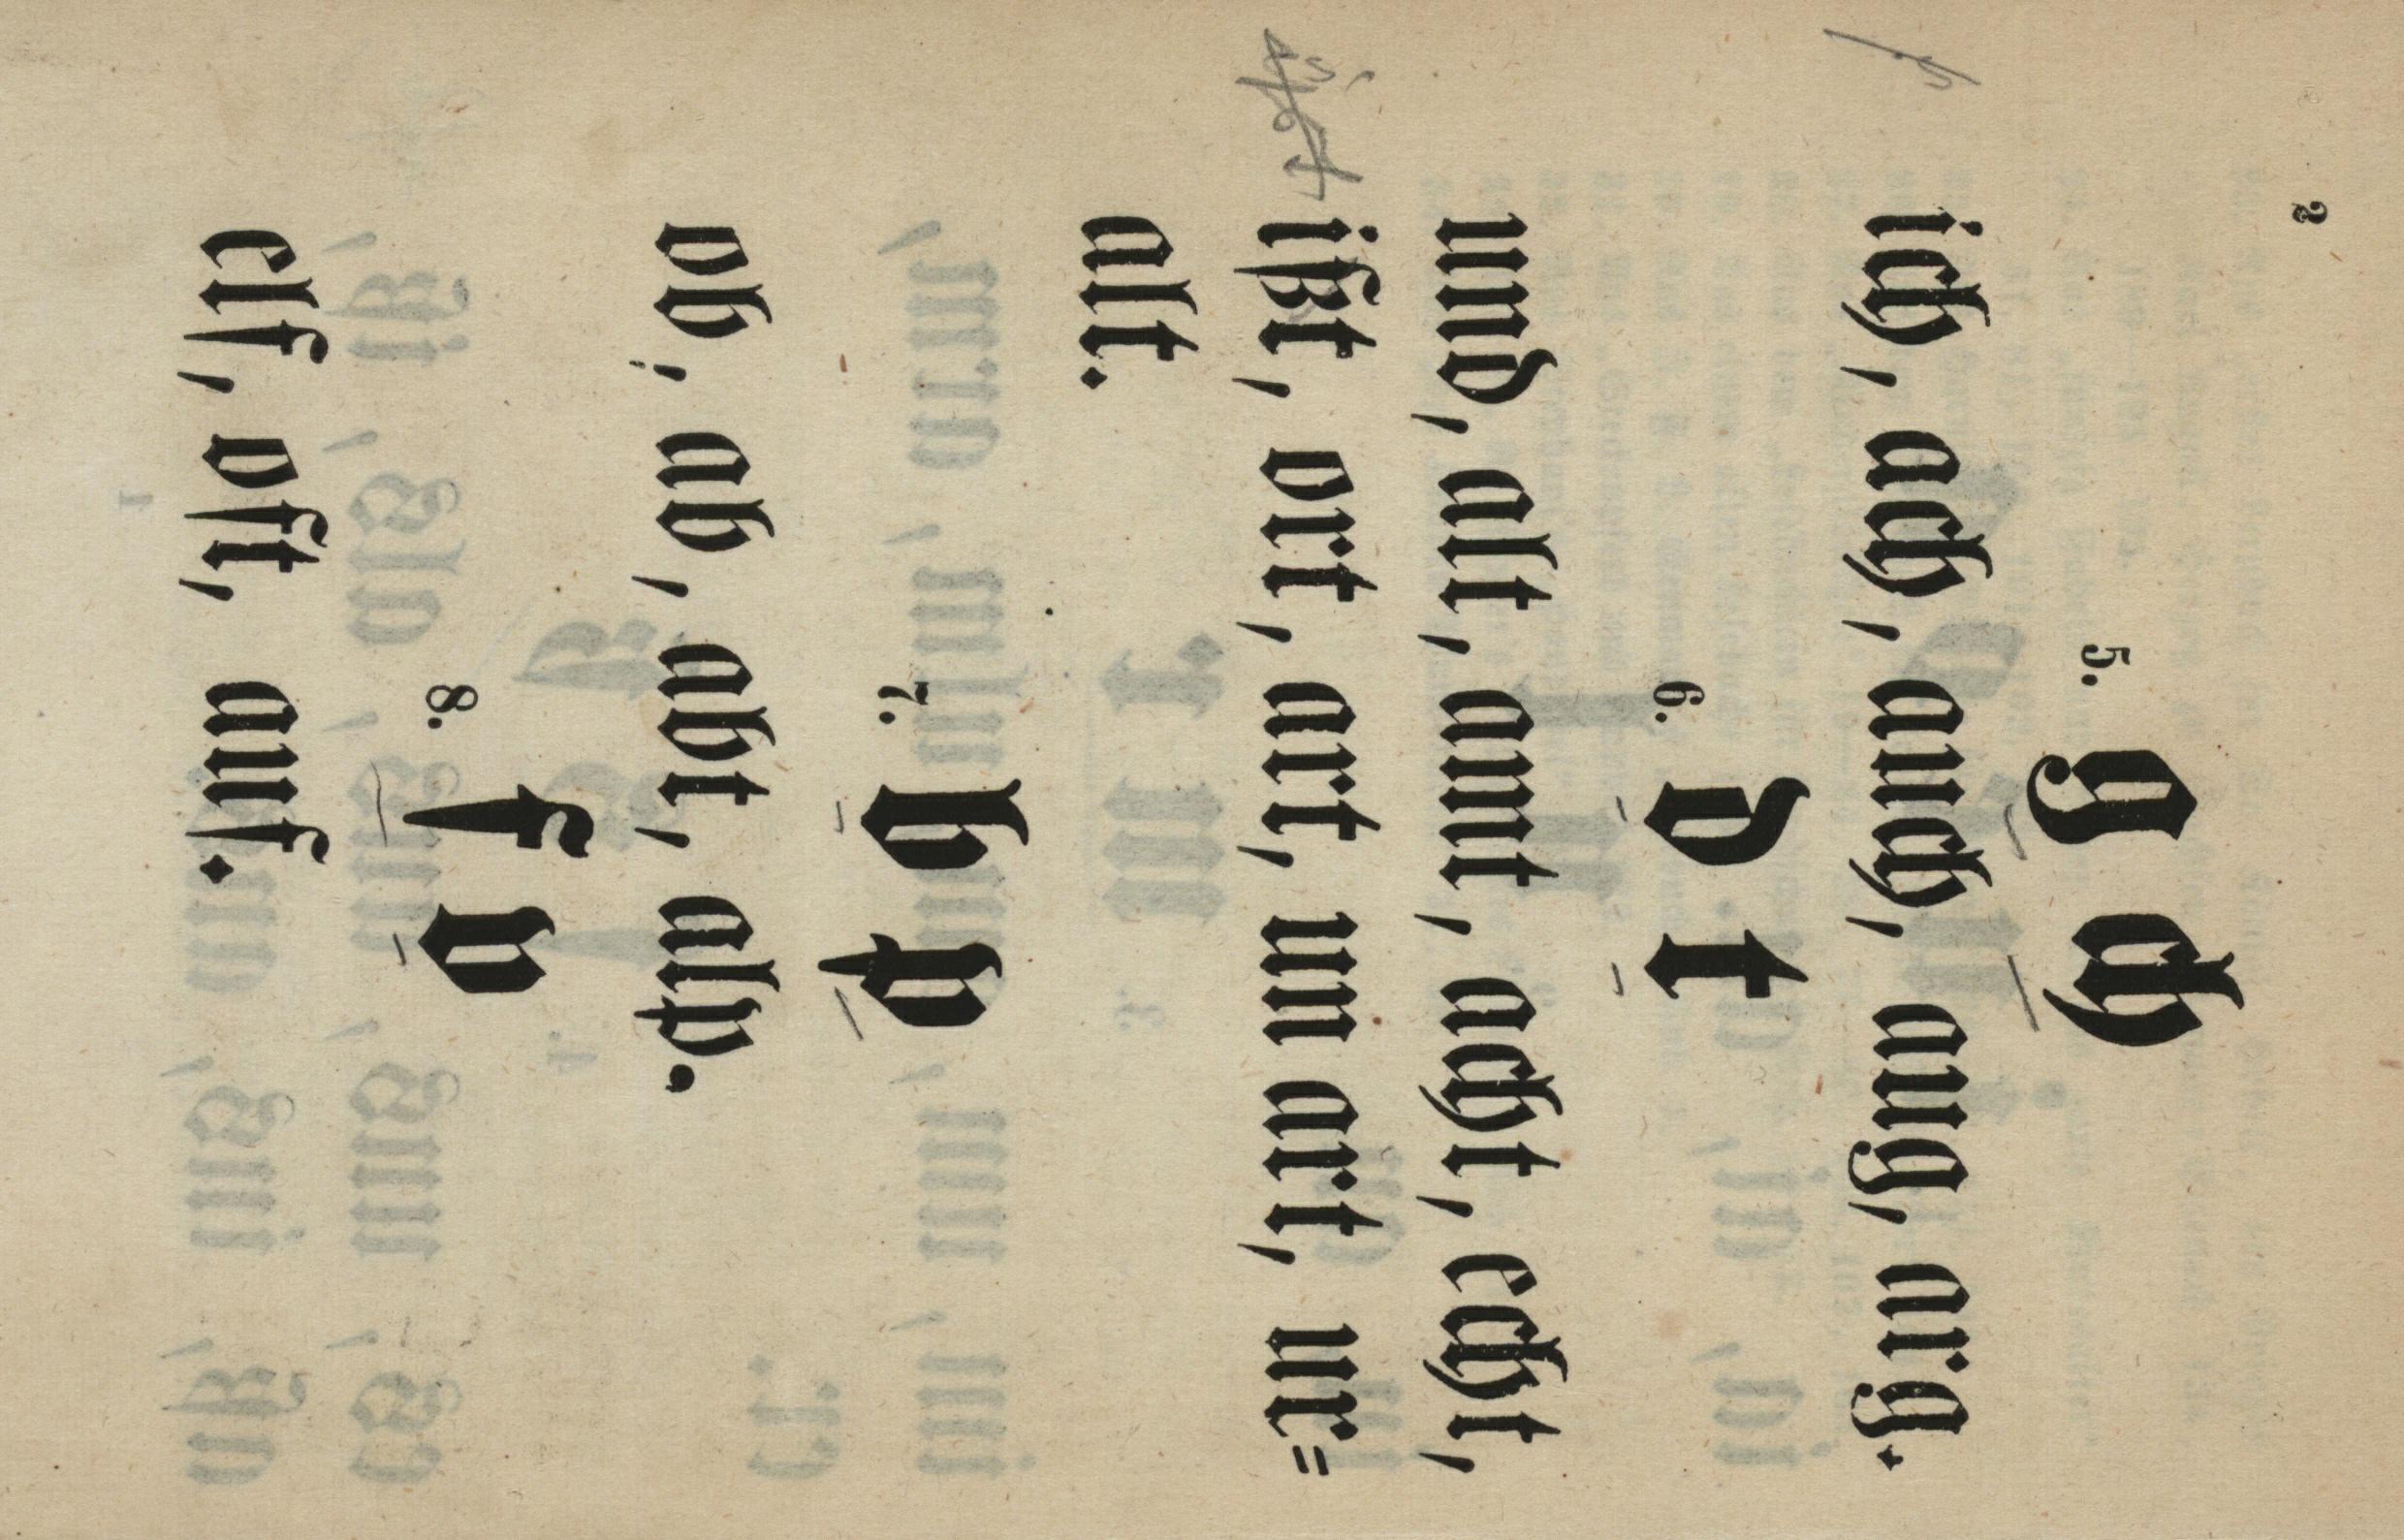 2
5.
g ch
ich, ach, auch, aug, arg.
6.
d t
und, alt, amt, acht, echt,
ißt, ort, art, um art, ur=
alt.
7.
b p
ob, ab, abt, alp.
8.
f v
elf, oft, auf.